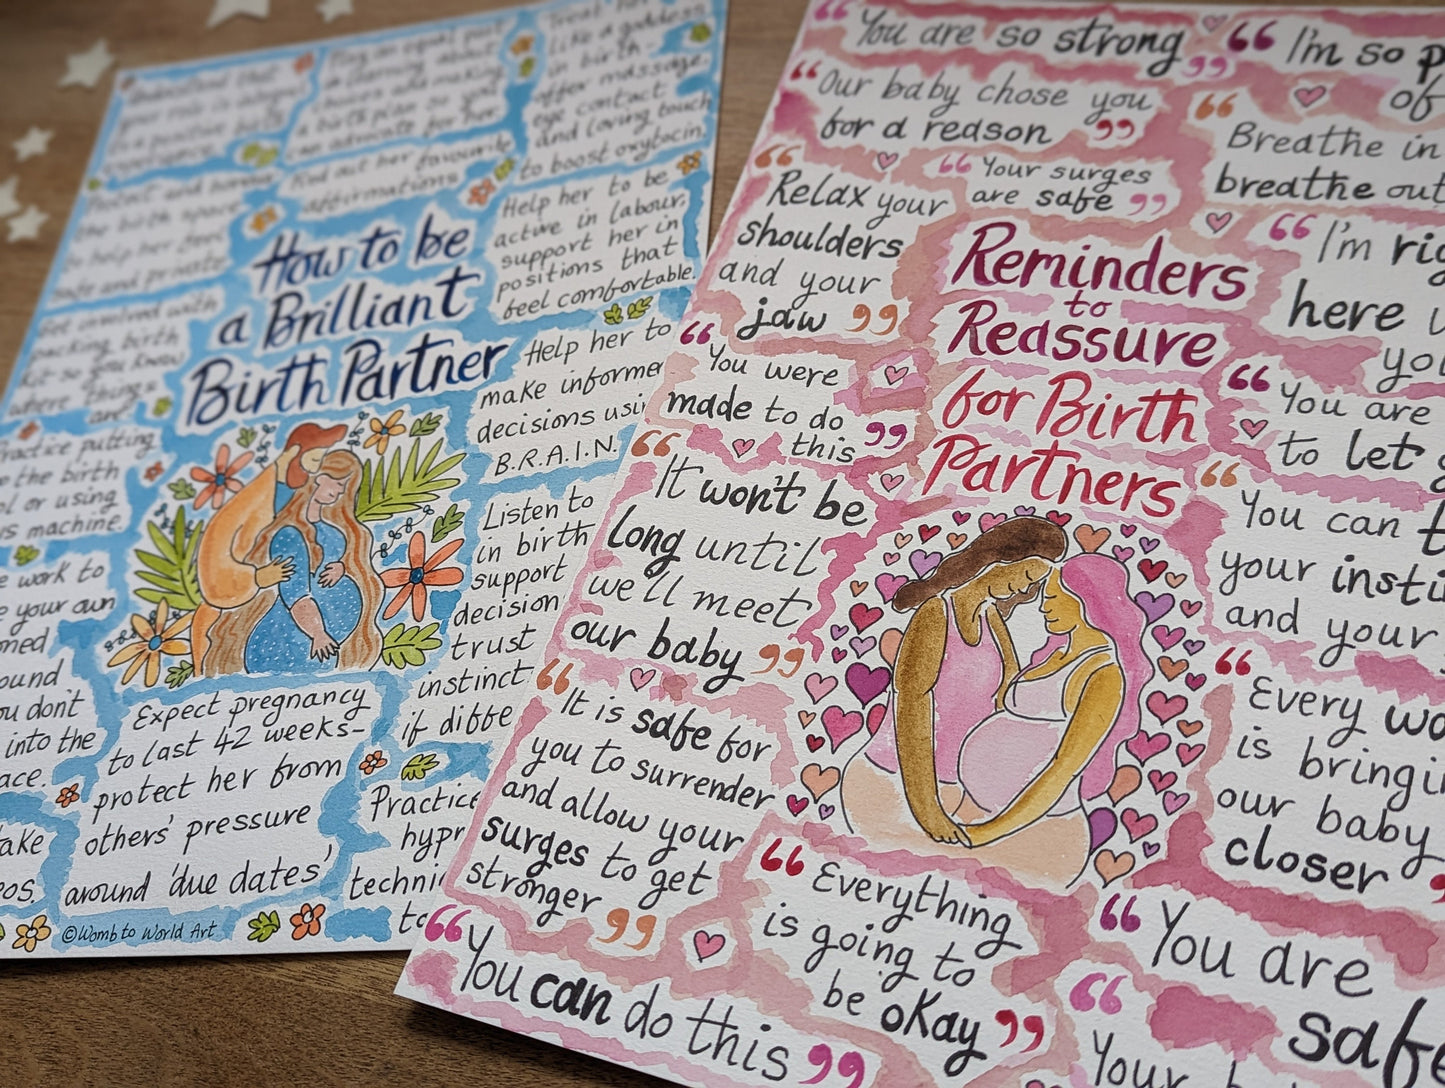 Understand that
your role is
in a positive birth
experience.
Play an equal part
in learning about
choices and making
a birth plan so you
can advocate for her.
Treat her
like a goddess
in birth -
offer massage,
eye contact
and loving touch
to boost oxytocin.
Protect and
the birth space
to help her feel
safe and private
Find out her favourite
affirmations
Help her to be
active in labour,
support her in
positions that
feel comfortable.
Get involved with
packing birth
kit so you know
where things
are.
How to be
a Brilliant
Birth Partner
Help her to
make informe
decisions usi
B.R.A.I.N.
Practice putting
the birth
or using
machine.
Listen to
in birth
support
decision
trust
instinct
if diffe
work to
your own
ound
ou don't
into the
ace.
Expect pregnancy
to last 42 weeks-
protect her from
others' pressure
around 'due dates'
Practice
hypn
techni
to
ake
eos.
©Womb to World Art
"You are so strong"
"I'm so p
of
"Our baby chose you
for a reason"
"Breathe in
breathe out
"Relax your
shoulders
and your
jaw"
"Your surges
are safe"
"I'm rig
here w
yo
Reminders
to
Reassure
for Birth
Partners
"You were
made to do
this"
"You are
to let g
"It won't be
long until
we'll meet
our baby"
"You can t
your insti
and your
"It is safe for
you to surrender
and allow your
surges to get
stronger"
"Every wa
is bringi
our baby
closer"
"Everything
is going to
be okay"
"You are
safe
"You can do this"
"Your b